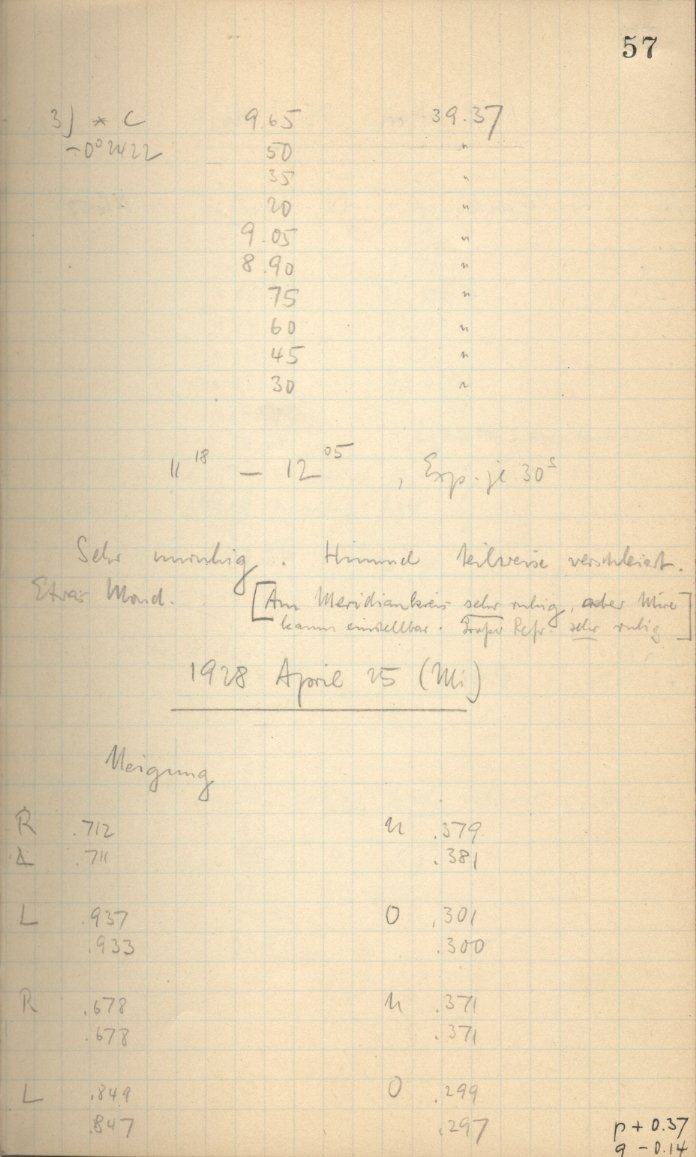 57
3) * C 9.65 39.37
-0°2422 50 "
35 "
20 "
9.05 "
8.90 "
75 "
60 "
45 "
30 "
11 18 — 12 05 , Exp. je 30s
Sehr unruhig. Himmel teilweise verschleiert.
Etwas Mond. [Am Meridiankreis sehr ruhig, aber Mire
kaum einstellbar. Großer Refr. sehr ruhig]
1928 April 25 (Mi)
Neigung
R .712 U .379
L .711 .381
L .937 O .301
.933 .300
R .678 U .371
.678 .371
L .849 O .299
.847 .297
p + 0.37
q - 0.14